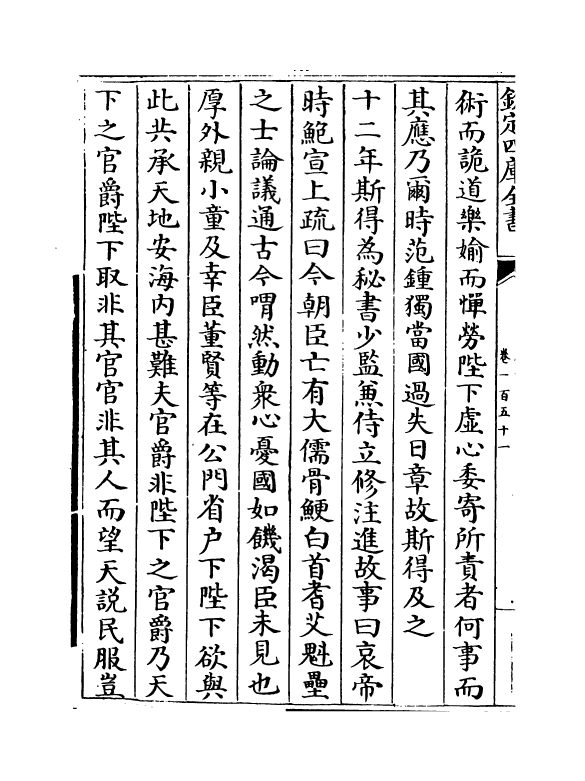 欽定四庫全書
卷一百五十一
術而詭道樂媮而憚勞陛下虛心委寄所責者何事而
其應乃爾時范鍾獨當國過失日章故斯得及之
十二年斯得為秘書少監兼侍立修注進故事曰哀帝
時鮑宣上疏曰今朝臣亡有大儒骨鯁白首耆艾魁壘
之士論議通古今喟然動衆心憂國如饑渴臣未見也
厚外親小童及幸臣董賢等在公門省户下陛下欲與
此共承天地安海内甚難夫官爵非陛下之官爵乃天
下之官爵陛下取非其官官非其人而望天説民服豈